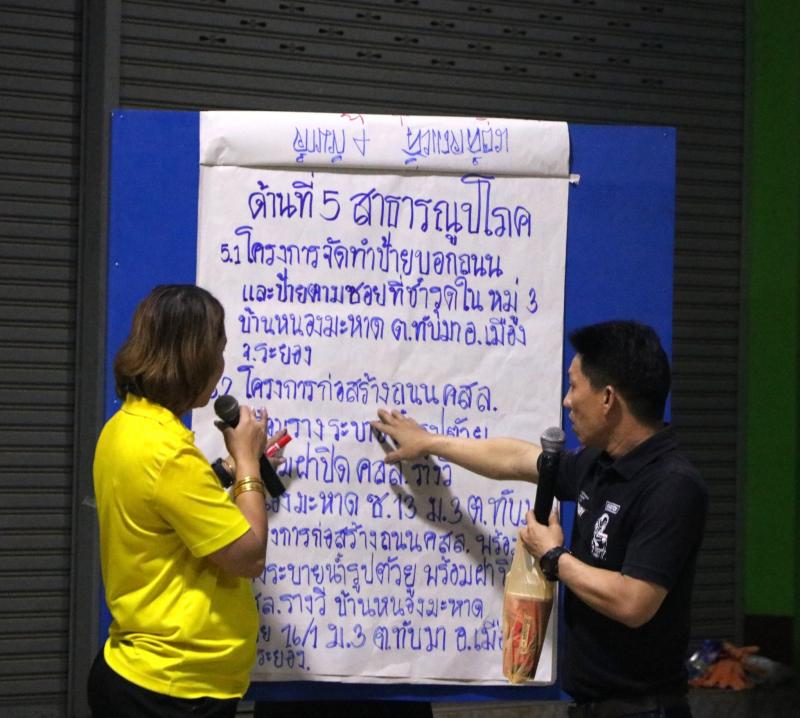 ด้านที่ 5 สาธารณูปโภค
5.1 โครงการจัดทำป้ายบอกถนน
และป้ายตามซอยที่ชำรุดใน หมู่ 3
บ้านหนองมะหาด ต.ทับมา อ.เมือง
จ.ระยอง
โครงการก่อสร้างถนน คสล.
วางระบาย รูปตัวยู
ฝาปิด คสล. รางวี
มะหาด ซ.13 ม.3 ต.ทับมา
การก่อสร้างถนนคสล. พร้อม
ระบายน้ำรูปตัวยู พร้อมฝา
รางวี บ้านหนองมะหาด
16/1 ม.3 ต.ทับมา อ.เมือ
ระยอง.